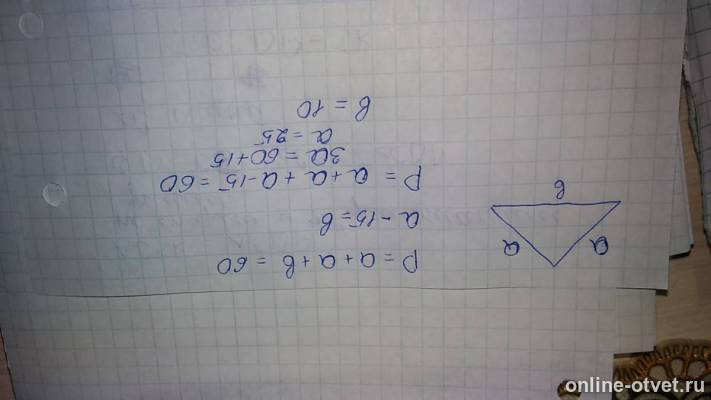 P = a + a + b = 60
a - 15 = b
P = a + a + a - 15 = 60
3a = 60 + 15
a = 25
b = 10
a
a
b
online-otvet.ru